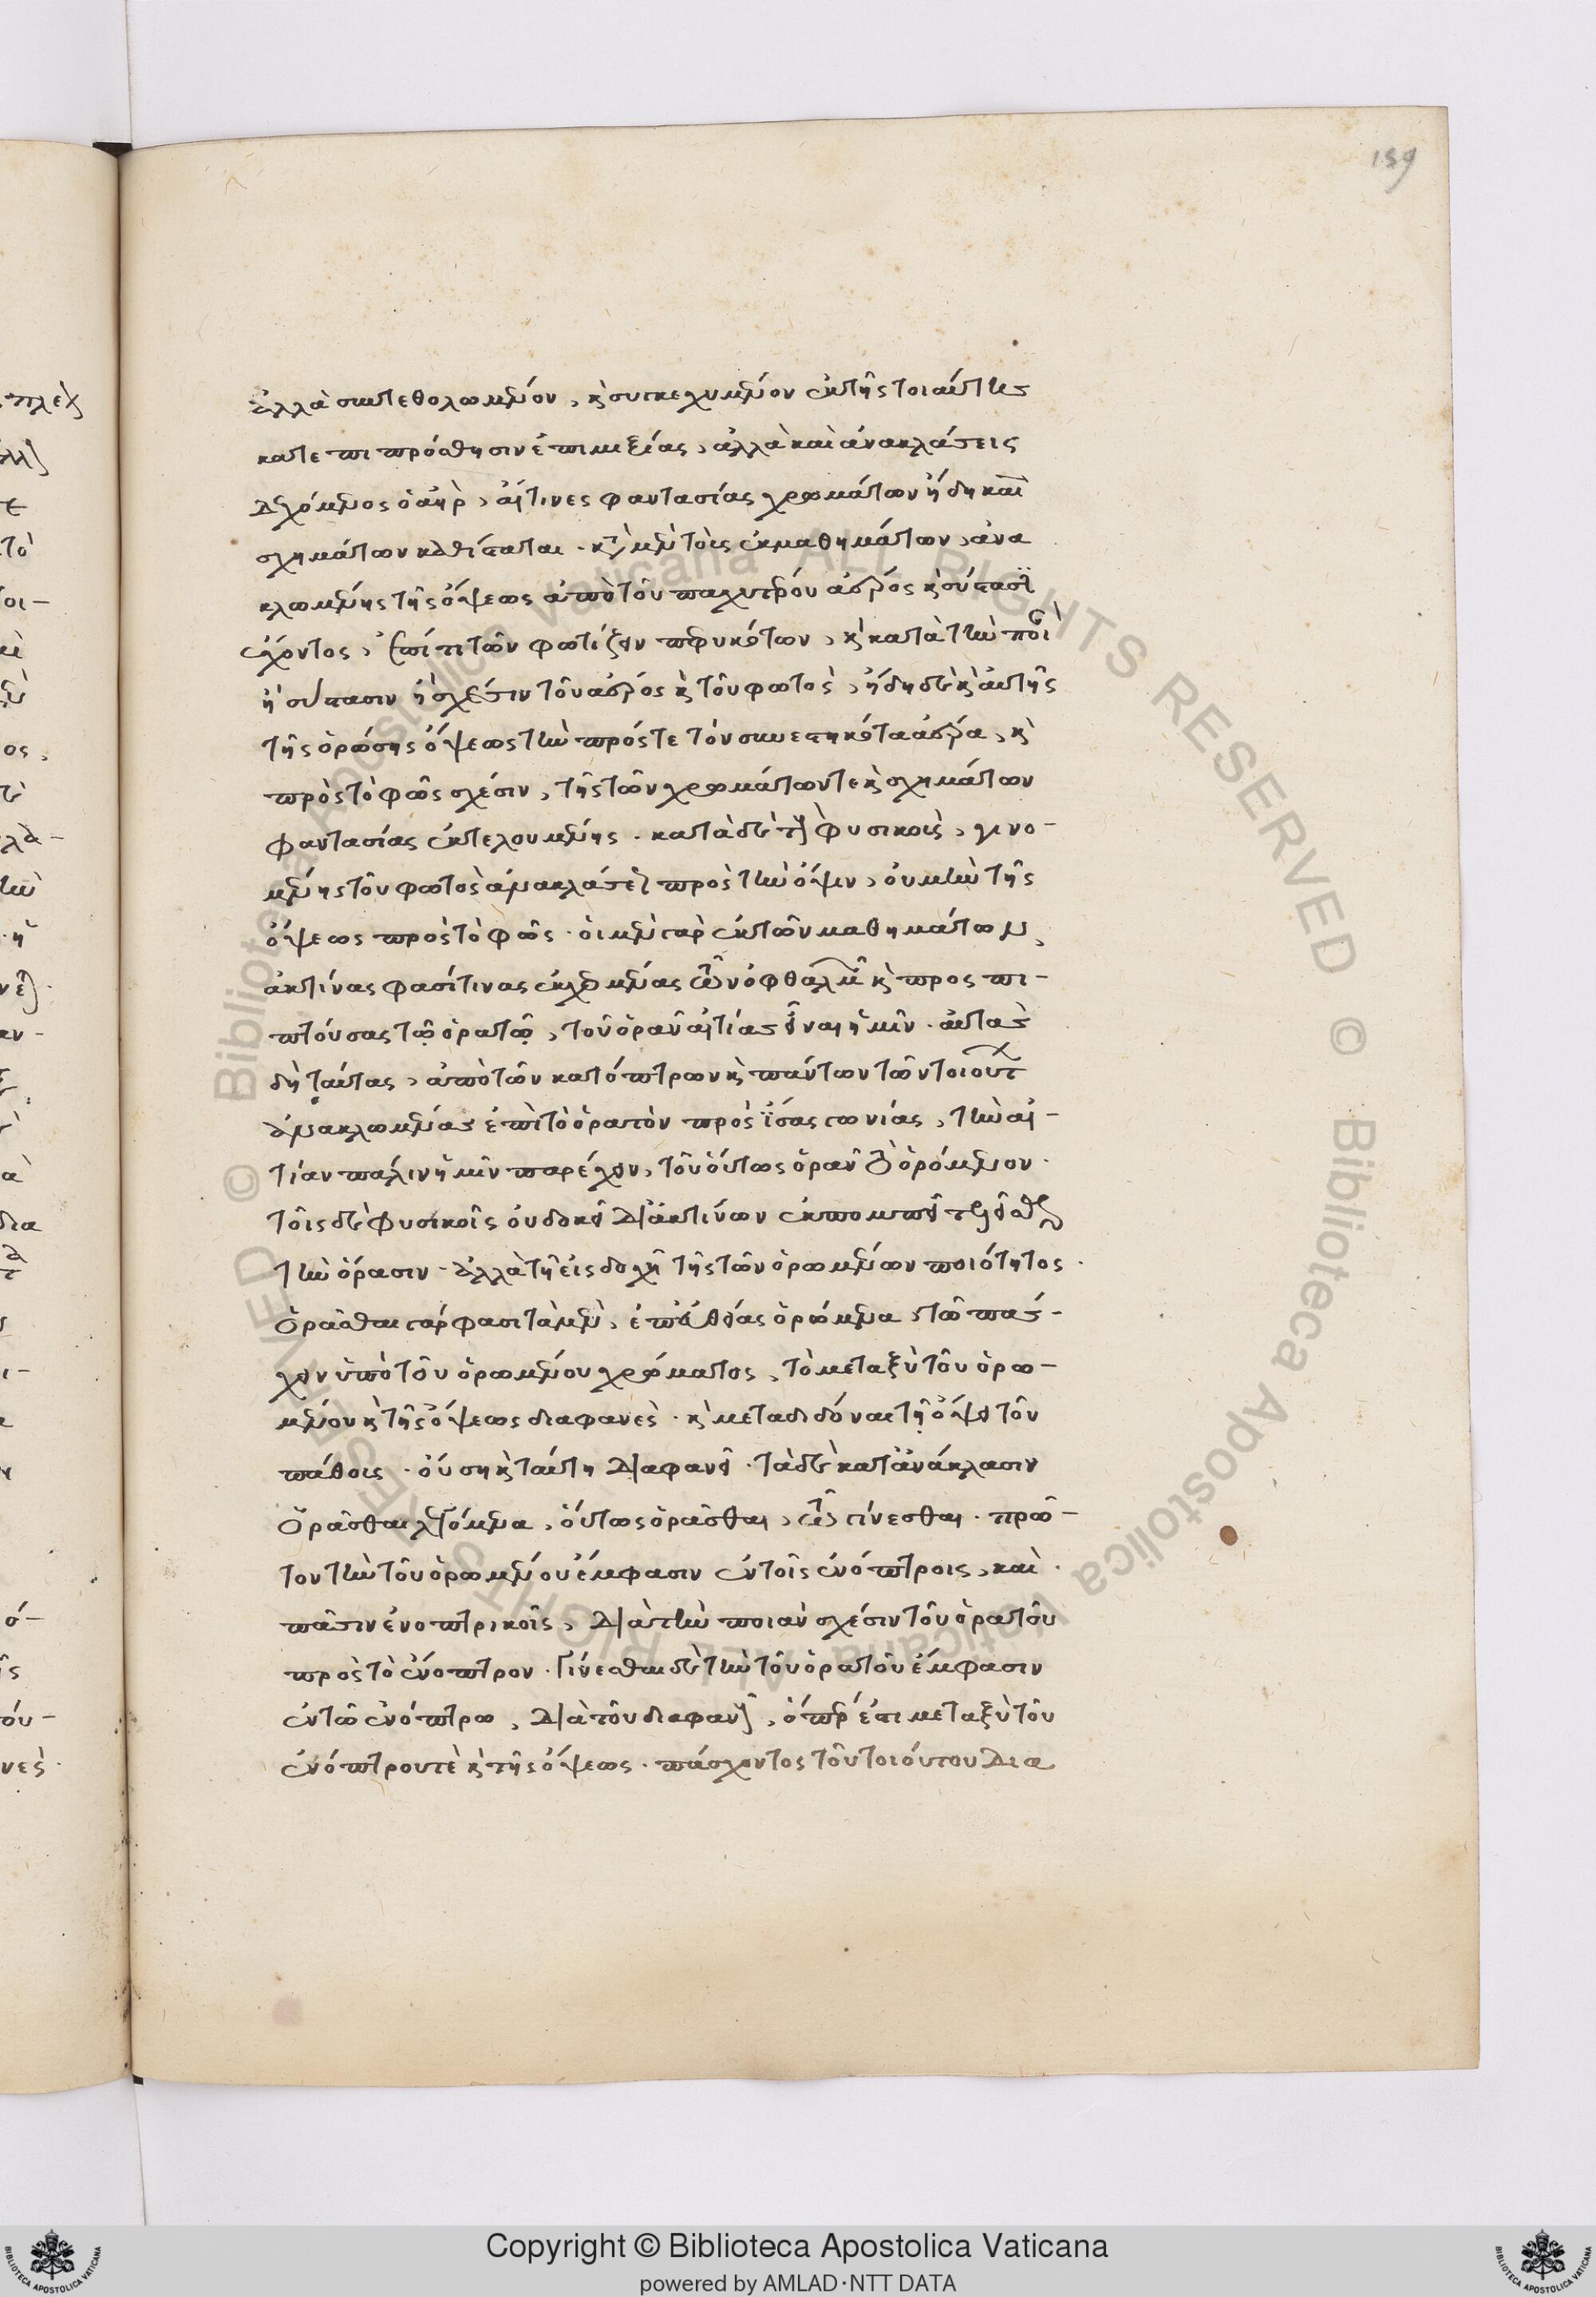 159
ἀλλὰ συντεθολωμένον, καὶ συγκεχυμένον ἐκ τῆς τοιαύτης
κατεπιπρόσθησιν ἐπιμιξίας, ἀλλὰ καὶ ἀνακλάσεις
δεχόμενος ὁ ἀὴρ, αἵτινες φαντασίας χρωμάτων ἤδη καὶ
σχημάτων καθίστανται. κατὰ μὲν τοὺς ἐκ μαθημάτων, ἀνα
κλωμένης τῆς ὄψεως ἀπὸ τοῦ παχυτέρου ἀέρος καὶ σύστασιν
ἔχοντος, ἐπί τι τῶν φωτίζειν πεφυκότων, καὶ κατὰ τὴν ποιὰν
ἢ σύστασιν ἢ σχέσιν τοῦ ἀέρος καὶ τοῦ φωτὸς, ἤδη δὲ καὶ αὐτῆς
τῆς ὁρώσης ὄψεως τὴν πρός τε τὸν συνεστηκότα ἀέρα, καὶ
πρὸς τὸ φῶς σχέσιν, τῆς τῶν χρωμάτων τε καὶ σχημάτων
φαντασίας ἐκτελουμένης. κατὰ δὲ τοὺς φυσικοὺς, γινο-
μένης τοῦ φωτὸς ἀνακλάσεως πρὸς τὴν ὄψιν, οὐ μὴν τῆς
ὄψεως πρὸς τὸ φῶς. οἱ μὲν γὰρ ἐκ τῶν μαθημάτων,
ἀκτῖνας φασί τινας ἐκχεομένας τῶν ὀφθαλμῶν καὶ προσπι-
πτούσας τῷ ὁρατῷ, τοῦ ὁρᾶν αἰτίας εἶναι ἡμῖν. αὐτὰς
δὴ ταύτας, ἀπὸ τῶν κατόπτρων καὶ πάντων τῶν τοιούτων
ἀνακλωμένας ἐπὶ τὸ ὁρατὸν πρὸς ἴσας γωνίας, τὴν αἰ-
τίαν πάλιν ἡμῖν παρέχειν, τοῦ οὕτως ὁρᾶν τὸ ὁρώμενον.
τοῖς δὲ φυσικοῖς οὐ δοκεῖ δι' ἀκτίνων ἐκπομπῆς γενέσθαι
τὴν ὅρασιν. ἀλλὰ τῇ εἰσδοχῇ τῆς τῶν ὁρωμένων ποιότητος.
ὁρᾶσθαι γάρ φασι τὰ μὲν, ἐπ' εὐθείας ὁρώμενα, τῷ πάσ-
χειν ὑπὸ τοῦ ὁρωμένου χρώματος, τὸ μεταξὺ τοῦ ὁρω-
μένου καὶ τῆς ὄψεως διαφανές. καὶ μεταδιδόναι τῇ ὄψει τοῦ
πάθους. οὔσῃ καὶ ταύτῃ διαφανεῖ. τὰ δὲ κατ' ἀνάκλασιν
ὁρᾶσθαι λεγόμενα, οὕτως ὁρᾶσθαι, τῷ γίνεσθαι. πρῶ-
τον τὴν τοῦ ὁρωμένου ἔμφασιν ἐν τοῖς ἐνόπτροις, καὶ
πᾶσιν ἐνοπτρικοῖς, διὰ τὴν ποιὰν σχέσιν τοῦ ὁρατοῦ
πρὸς τὸ ἔνοπτρον. γίνεσθαι δὲ τὴν τοῦ ὁρατοῦ ἔμφασιν
ἐν τῷ ἐνόπτρῳ, διὰ τοῦ διαφανοῦς, ὅπερ ἐστὶ μεταξὺ τοῦ
ἐνόπτρου τὲ καὶ τῆς ὄψεως. πάσχοντος τοῦ τοιούτου δια
Copyright © Biblioteca Apostolica Vaticana
powered by AMLAD·NTT DATA